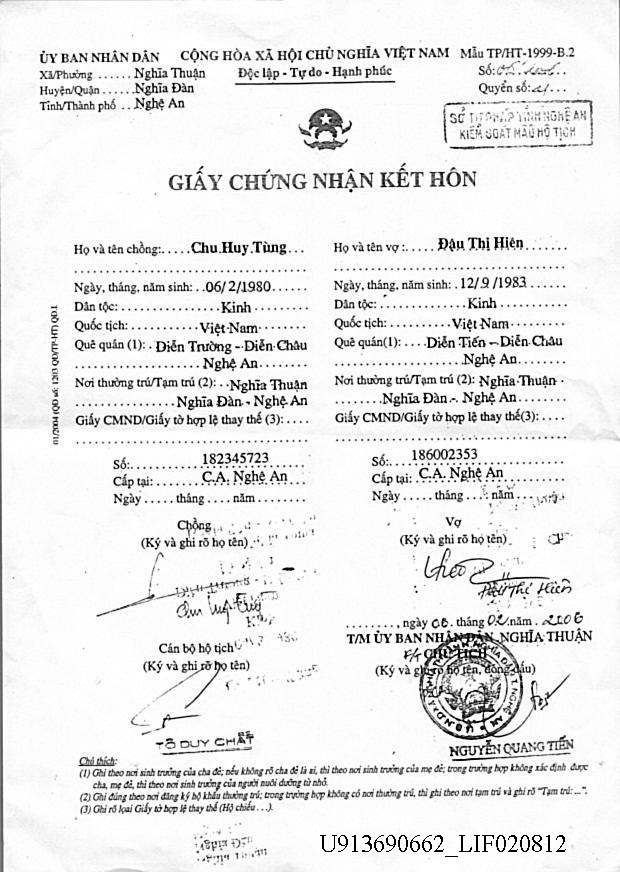 ỦY BAN NHÂN DÂN CỘNG HÒA XÃ HỘI CHỦ NGHĨA VIỆT NAM Mẫu TP/HT-1999-B.2
Xã/Phường ...... Nghĩa Thuận Độc lập - Tự do - Hạnh phúc Số:
Huyện/Quận ..... Nghĩa Đàn Quyển số:
Tỉnh/Thành phố .. Nghệ An
SỞ TƯ PHÁP TỈNH NGHỆ AN
KIỂM SOÁT MẪU HỘ TỊCH
GIẤY CHỨNG NHẬN KẾT HÔN
Họ và tên chồng:..... Chu Huy Tùng
Ngày, tháng, năm sinh: ..06/2/1980
Dân tộc: Kinh
Quốc tịch: Việt Nam
Quê quán(1): . Diễn Trường - Diễn Châu
Nghệ An
Nơi thường trú/Tạm trú (2): ..Nghĩa Thuận
Nghĩa Đàn - Nghệ An
Giấy CMND/Giấy tờ hợp lệ thay thế (3):....
Số: 182345723
Cấp tại: C.A. Nghệ An
Ngày ..... tháng .... năm ........
Chồng
(Ký và ghi rõ họ tên)
Cán bộ hộ tịch
(Ký và ghi rõ họ tên)
TÔ DUY CHẤT
Họ và tên vợ :..... Đậu Thị Hiên
Ngày, tháng, năm sinh: . 12/9/1983
Dân tộc: Kinh
Quốc tịch: Việt Nam
Quê quán(1): Diễn Tiến - Diễn Châu
Nghệ An
Nơi thường trú/Tạm trú (2): Nghĩa Thuận
Nghĩa Đàn - Nghệ An
Giấy CMND/Giấy tờ hợp lệ thay thế(3):....
Số: 186002353
Cấp tại: C.A. Nghệ An
Ngày ..... tháng .... năm
Vợ
(Ký và ghi rõ họ tên)
Đậu Thị Hiên
........, ngày 06. tháng 02. năm . 2006
T/M ỦY BAN NHÂN DÂN NGHĨA THUẬN
CHỦ TỊCH
(Ký và ghi rõ họ tên, đóng dấu)
NGUYỄN QUANG TIẾN
01/2004 (QĐ số: 1203 QĐ/TP-HT) QĐ.1
Chú thích:
(1) Ghi theo nơi sinh trưởng của cha đẻ; nếu không rõ cha đẻ là ai, thì theo nơi sinh trưởng của mẹ đẻ; trong trường hợp không xác định được
cha, mẹ đẻ, thì theo nơi sinh trưởng của người nuôi dưỡng từ nhỏ.
(2) Ghi đúng theo nơi đăng ký hộ khẩu thường trú; trong trường hợp không có nơi thường trú, thì ghi theo nơi tạm trú và ghi rõ "Tạm trú: ...".
(3) Ghi rõ loại Giấy tờ hợp lệ thay thế (Hộ chiếu . . .).
U913690662_LIF020812